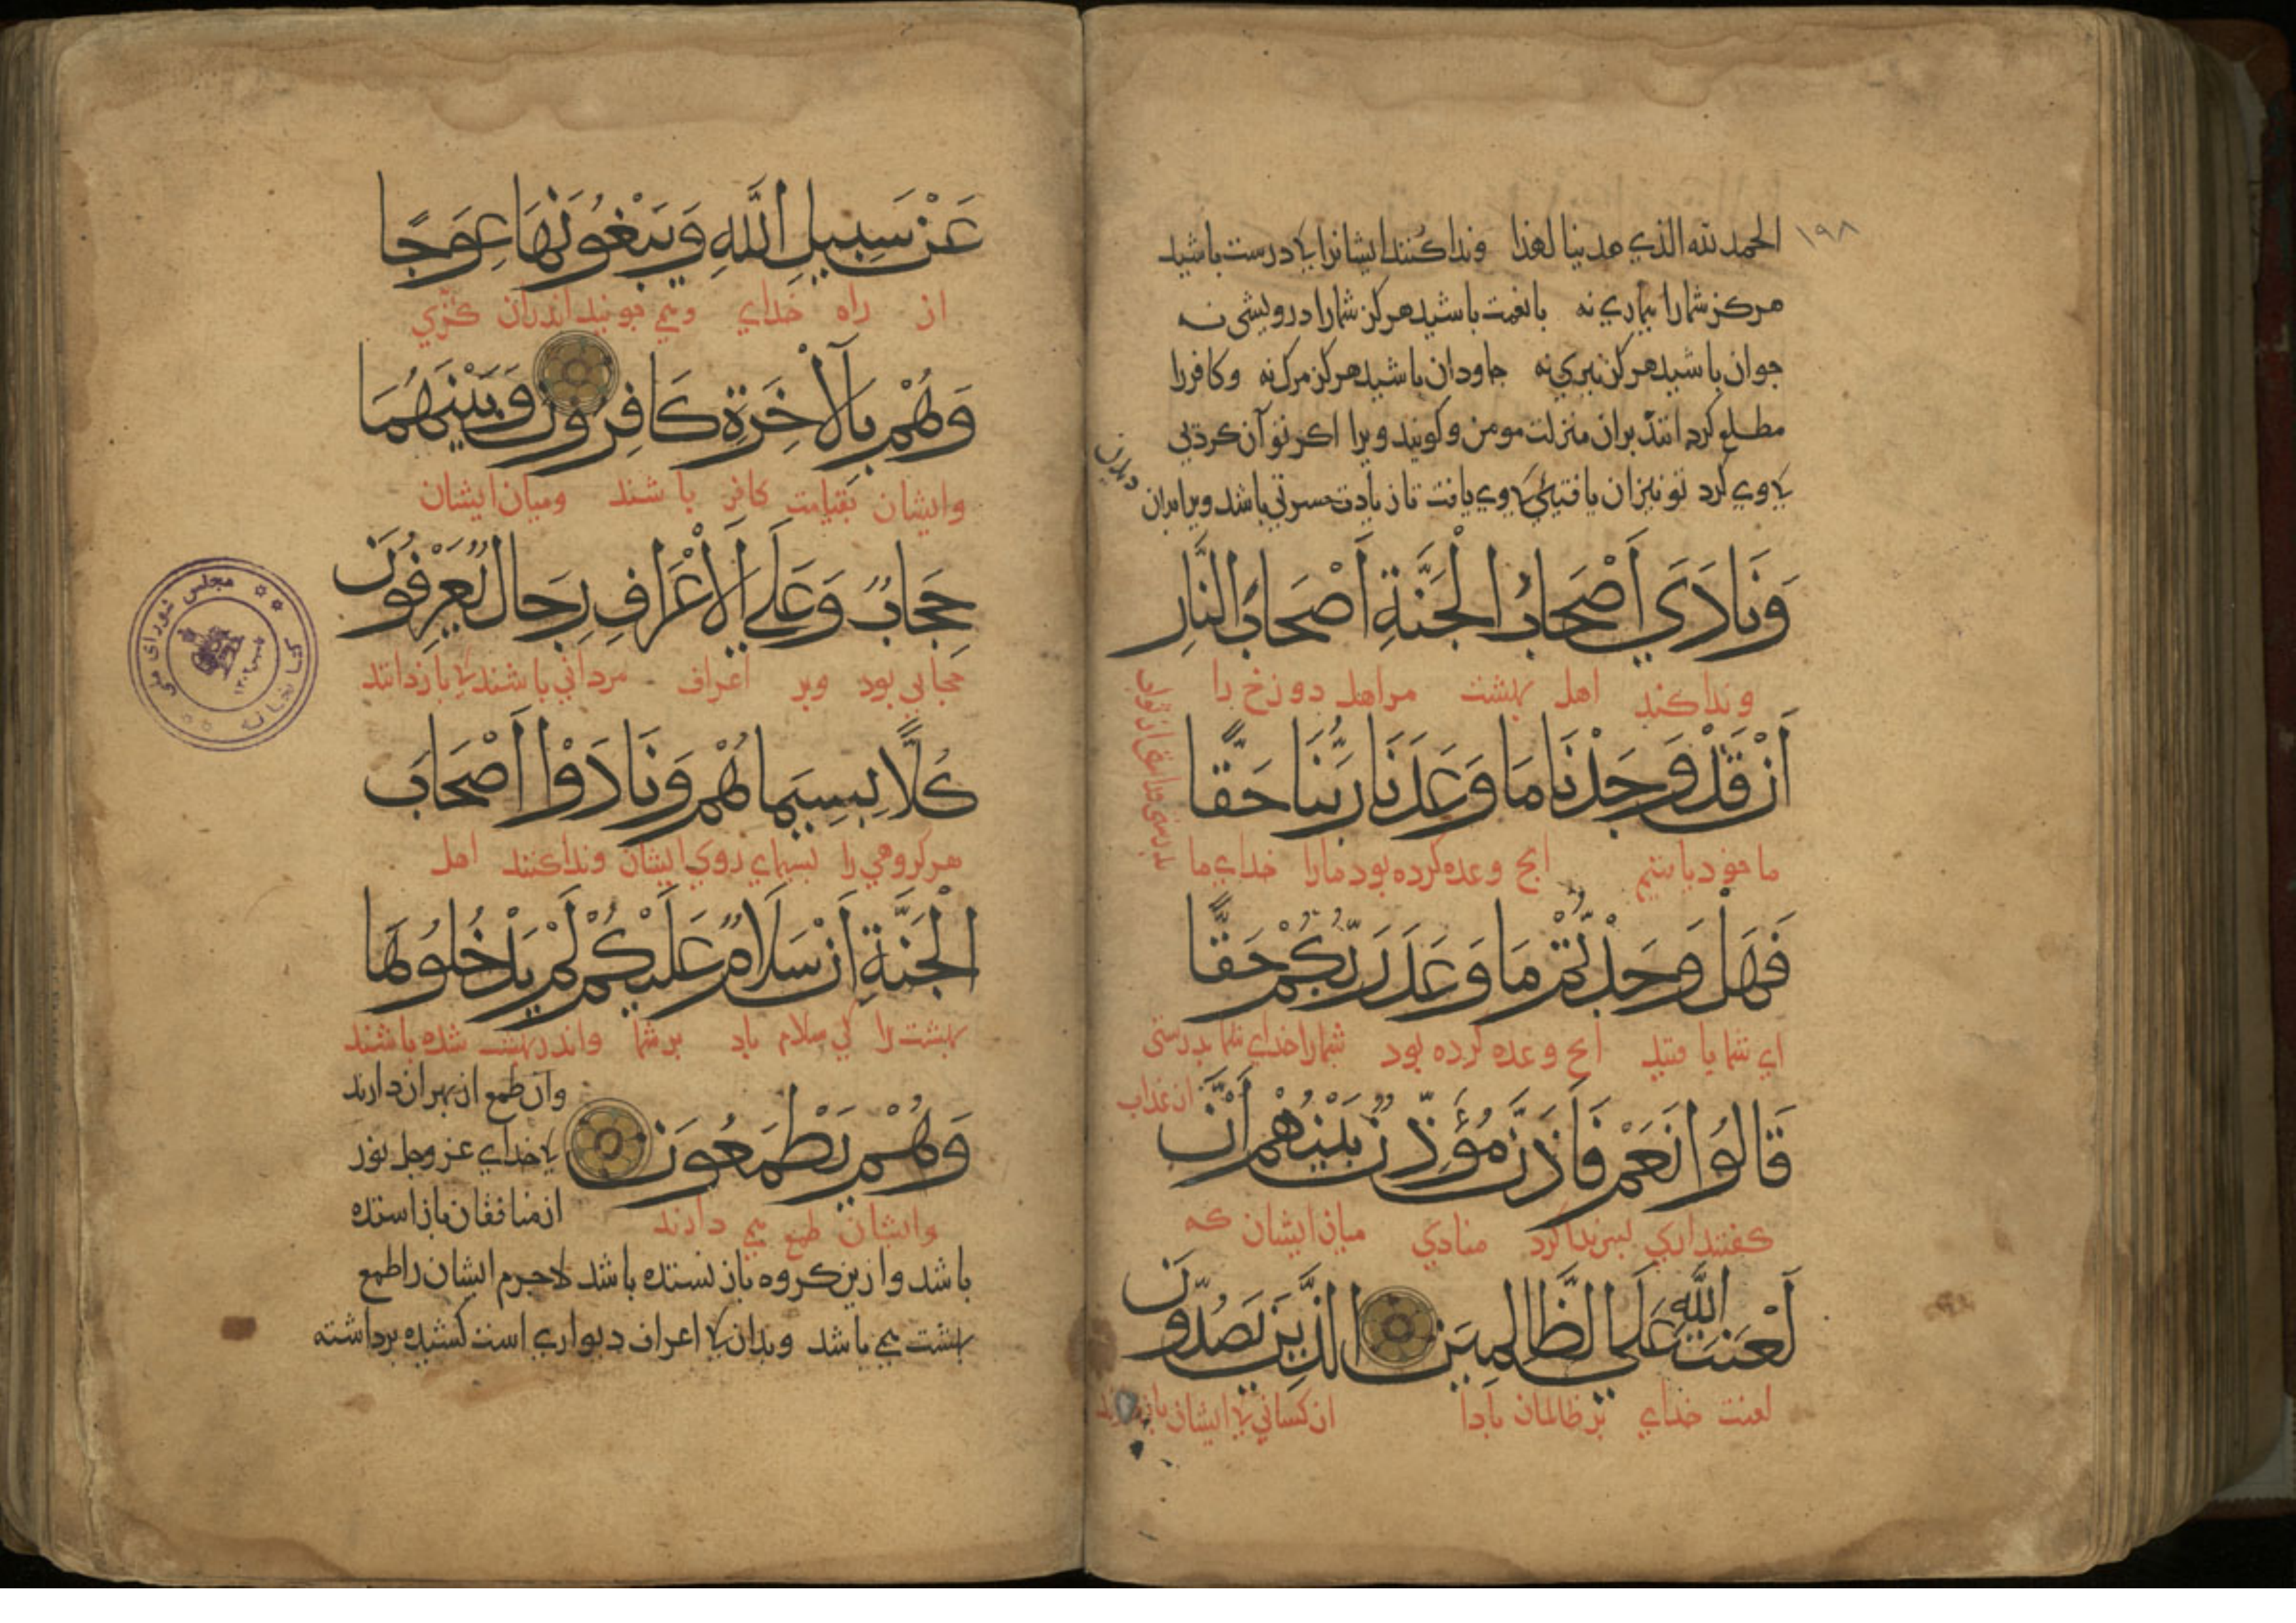 ۱۹۸
الحمد لله الذي هدينا لهذا وندا كنند ایشانرا کی درست باشید
هرکز شمارا بیماري نه با نعمت باشید هرکز شمارا درویشی نه
جوان باشید هرکز پیري نه جاودان باشید هرکز مرک نه وکافررا
مطلع کردانند بران منزلت مومن وکویند ویرا اکر تو آن کردیی
کی وي کرد تو نیز ان یافتیئی کی وي یافت تا زیادت حسرتی باشد ویرا بران
دیدن
وَنَادَي أَصْحَابُ الْجَنَّةِ أَصْحَابَ النَّارِ
وندا کند اهل بهشت مر اهل دوزخ را
أَنْ قَدْ وَجَدْنَا مَا وَعَدَنَا رَبُّنَا حَقًّا
ما خود یافتیم انچ وعده کرده بود مارا خداي ما
فَهَلْ وَجَدْتُمْ مَا وَعَدَ رَبُّكُمْ حَقًّا
اي شما یافتید انچ وعده کرده بود شمارا خداي شما بدرستی
از عذاب
قَالُوا نَعَمْ فَأَذَّنَ مُؤَذِّنٌ بَيْنَهُمْ أَنْ
کفتند اري پس ندا کرد منادي میان ایشان که
لَعْنَتُ اللَّهِ عَلَي الظَّالِمِينَ الَّذِينَ يَصُدُّونَ
لعنت خداي بر ظالمان بادا ان کسانی کی ایشان
عَنْ سَبِيلِ اللَّهِ وَيَبْغُونَهَا عِوَجًا
از راه خداي ومی جویند اندران کژي
وَهُمْ بِالْآخِرَةِ كَافِرُونَ وَبَيْنَهُمَا
وایشان بقیامت کافر باشند ومیان ایشان
حِجَابٌ وَعَلَي الْأَعْرَافِ رِجَالٌ يَعْرِفُونَ
حجابی بود وبر اعراف مردانی باشند کی بازدانند
كُلًّا بِسِيمَاهُمْ وَنَادَوْا أَصْحَابَ
هر کروهی را بسیماي روي ایشان وندا کنند اهل
الْجَنَّةِ أَنْ سَلَامٌ عَلَيْكُمْ لَمْ يَدْخُلُوهَا
بهشت را کی سلام باد بر شما واندر بهشت شده باشند
وَهُمْ يَطْمَعُونَ
وایشان طمع می دارند
وان طمع از بهر ان دارند
کی خداي عز وجل نور
از منافقان باز استده
باشد وازین کروه باز نستده باشد لاجرم ایشان را طمع
بهشت می باشد وبدان کی اعراف دیواري است کشیده برداشته
کتابخانه مجلس شورای ملی